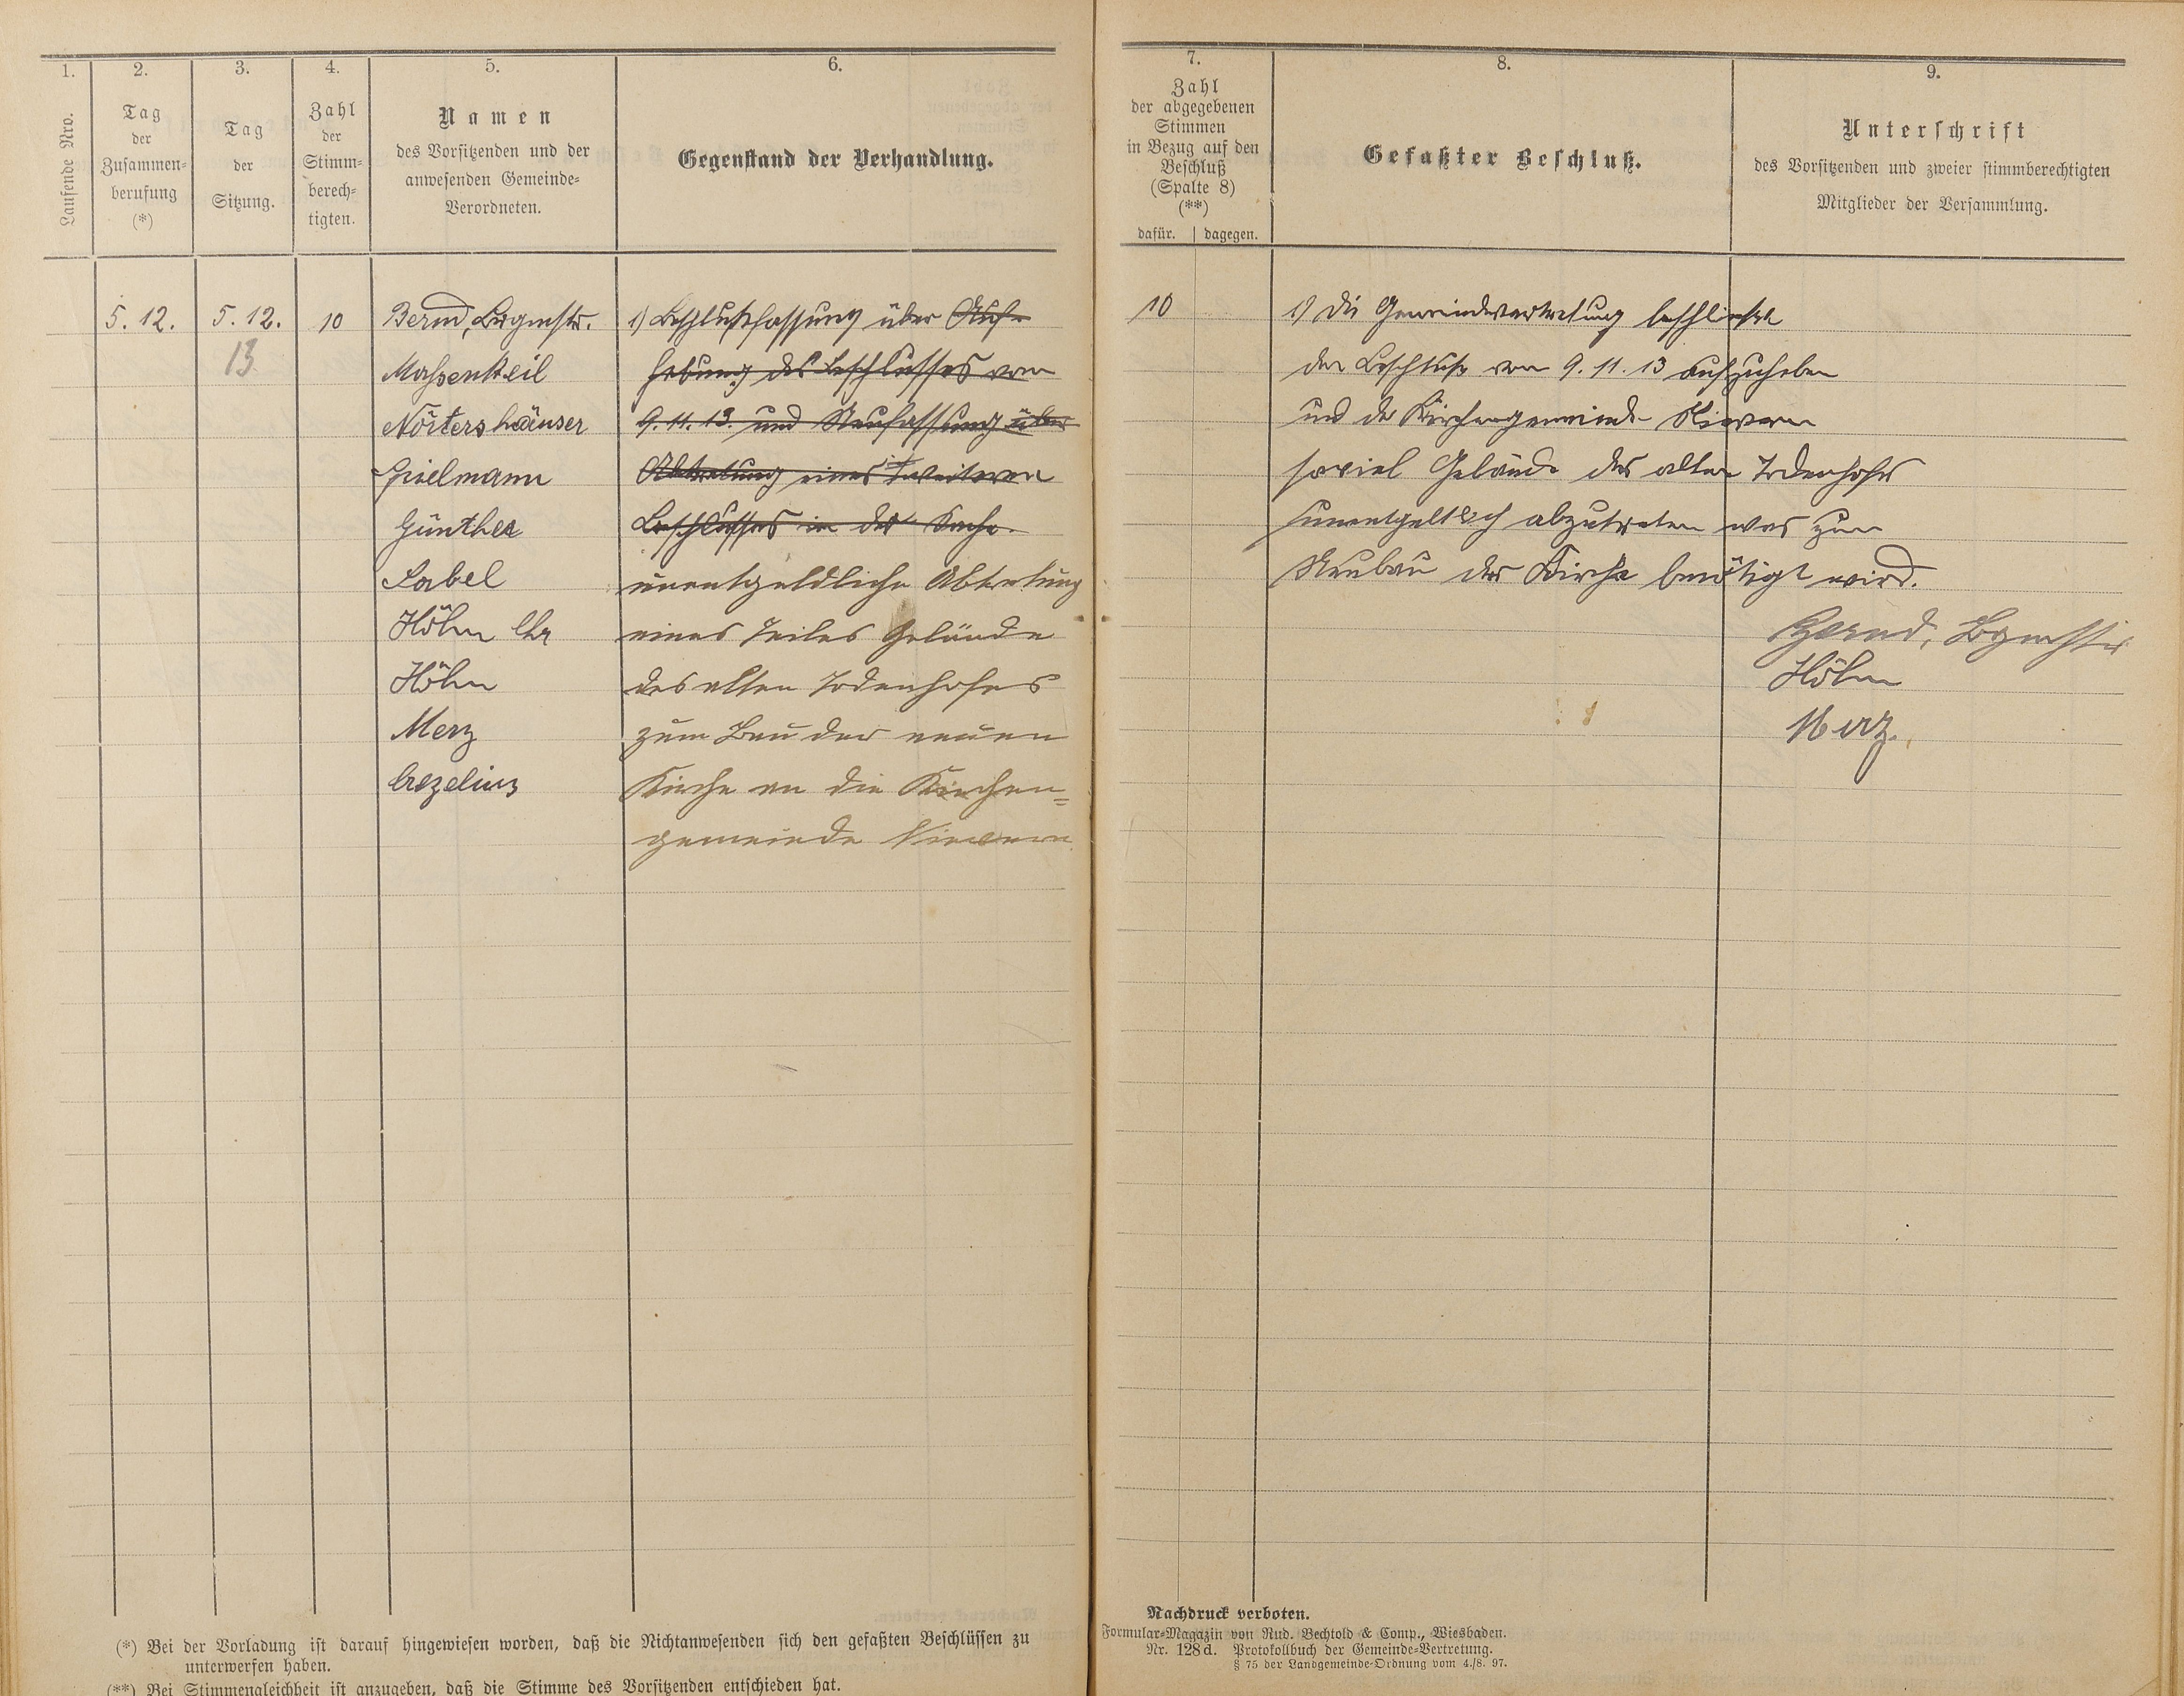 1.
Laufende Nro.
2.
Tag
der
Zusammen-
berufung
(*)
3.
Tag
der
Sitzung.
4.
Zahl
der
Stimm-
berech-
tigten.
5.
Namen
des Vorsitzenden und der
anwesenden Gemeinde-
Verordneten.
6.
Gegenstand der Verhandlung.
5. 12.
5. 12.
13
10
Bernd, Brgmstr.
Maßenkeil
Nörtershäuser
Spielmann
Günther
Sabel
Höhn Chr
Höhn
Merz
Crezelius
1) Beschlußfassung über Auf-
hebung des Beschlusses vom
9. 11. 13. und Neufassung über
Abtretung eines weiteren
Beschlusses in der Sache.
unentgeldliche Abtretung
eines Teiles Gelände
des alten Todenhofes
zum Bau der neuen
Kirche an die Kirchen=
gemeinde Nievern
(*) Bei der Vorladung ist darauf hingewiesen worden, daß die Nichtanwesenden sich den gefaßten Beschlüssen zu
unterwerfen haben.
(**) Bei Stimmengleichheit ist anzugeben, daß die Stimme des Vorsitzenden entschieden hat.
7.
Zahl
der abgegebenen
Stimmen
in Bezug auf den
Beschluß
(Spalte 8)
(**)
dafür. | dagegen.
8.
Gefaßter Beschluß.
9.
Unterschrift
des Vorsitzenden und zweier stimmberechtigten
Mitglieder der Versammlung.
10
1) Die Gemeindevertretung beschließt
den Beschluß vom 9. 11. 13 aufzuheben
und der Kirchengemeinde Nievern
soviel Gelände des alten Todenhofes
unentgeltlich abzutreten was zum
Neubau der Kirche benötigt wird.
Bernd, Bgmstr
Höhn
Merz.
Nachdruck verboten.
Formular-Magazin von Rud. Bechtold & Comp., Wiesbaden.
Nr. 128d. Protokollbuch der Gemeinde-Vertretung.
§ 75 der Landgemeinde-Ordnung vom 4./8. 97.